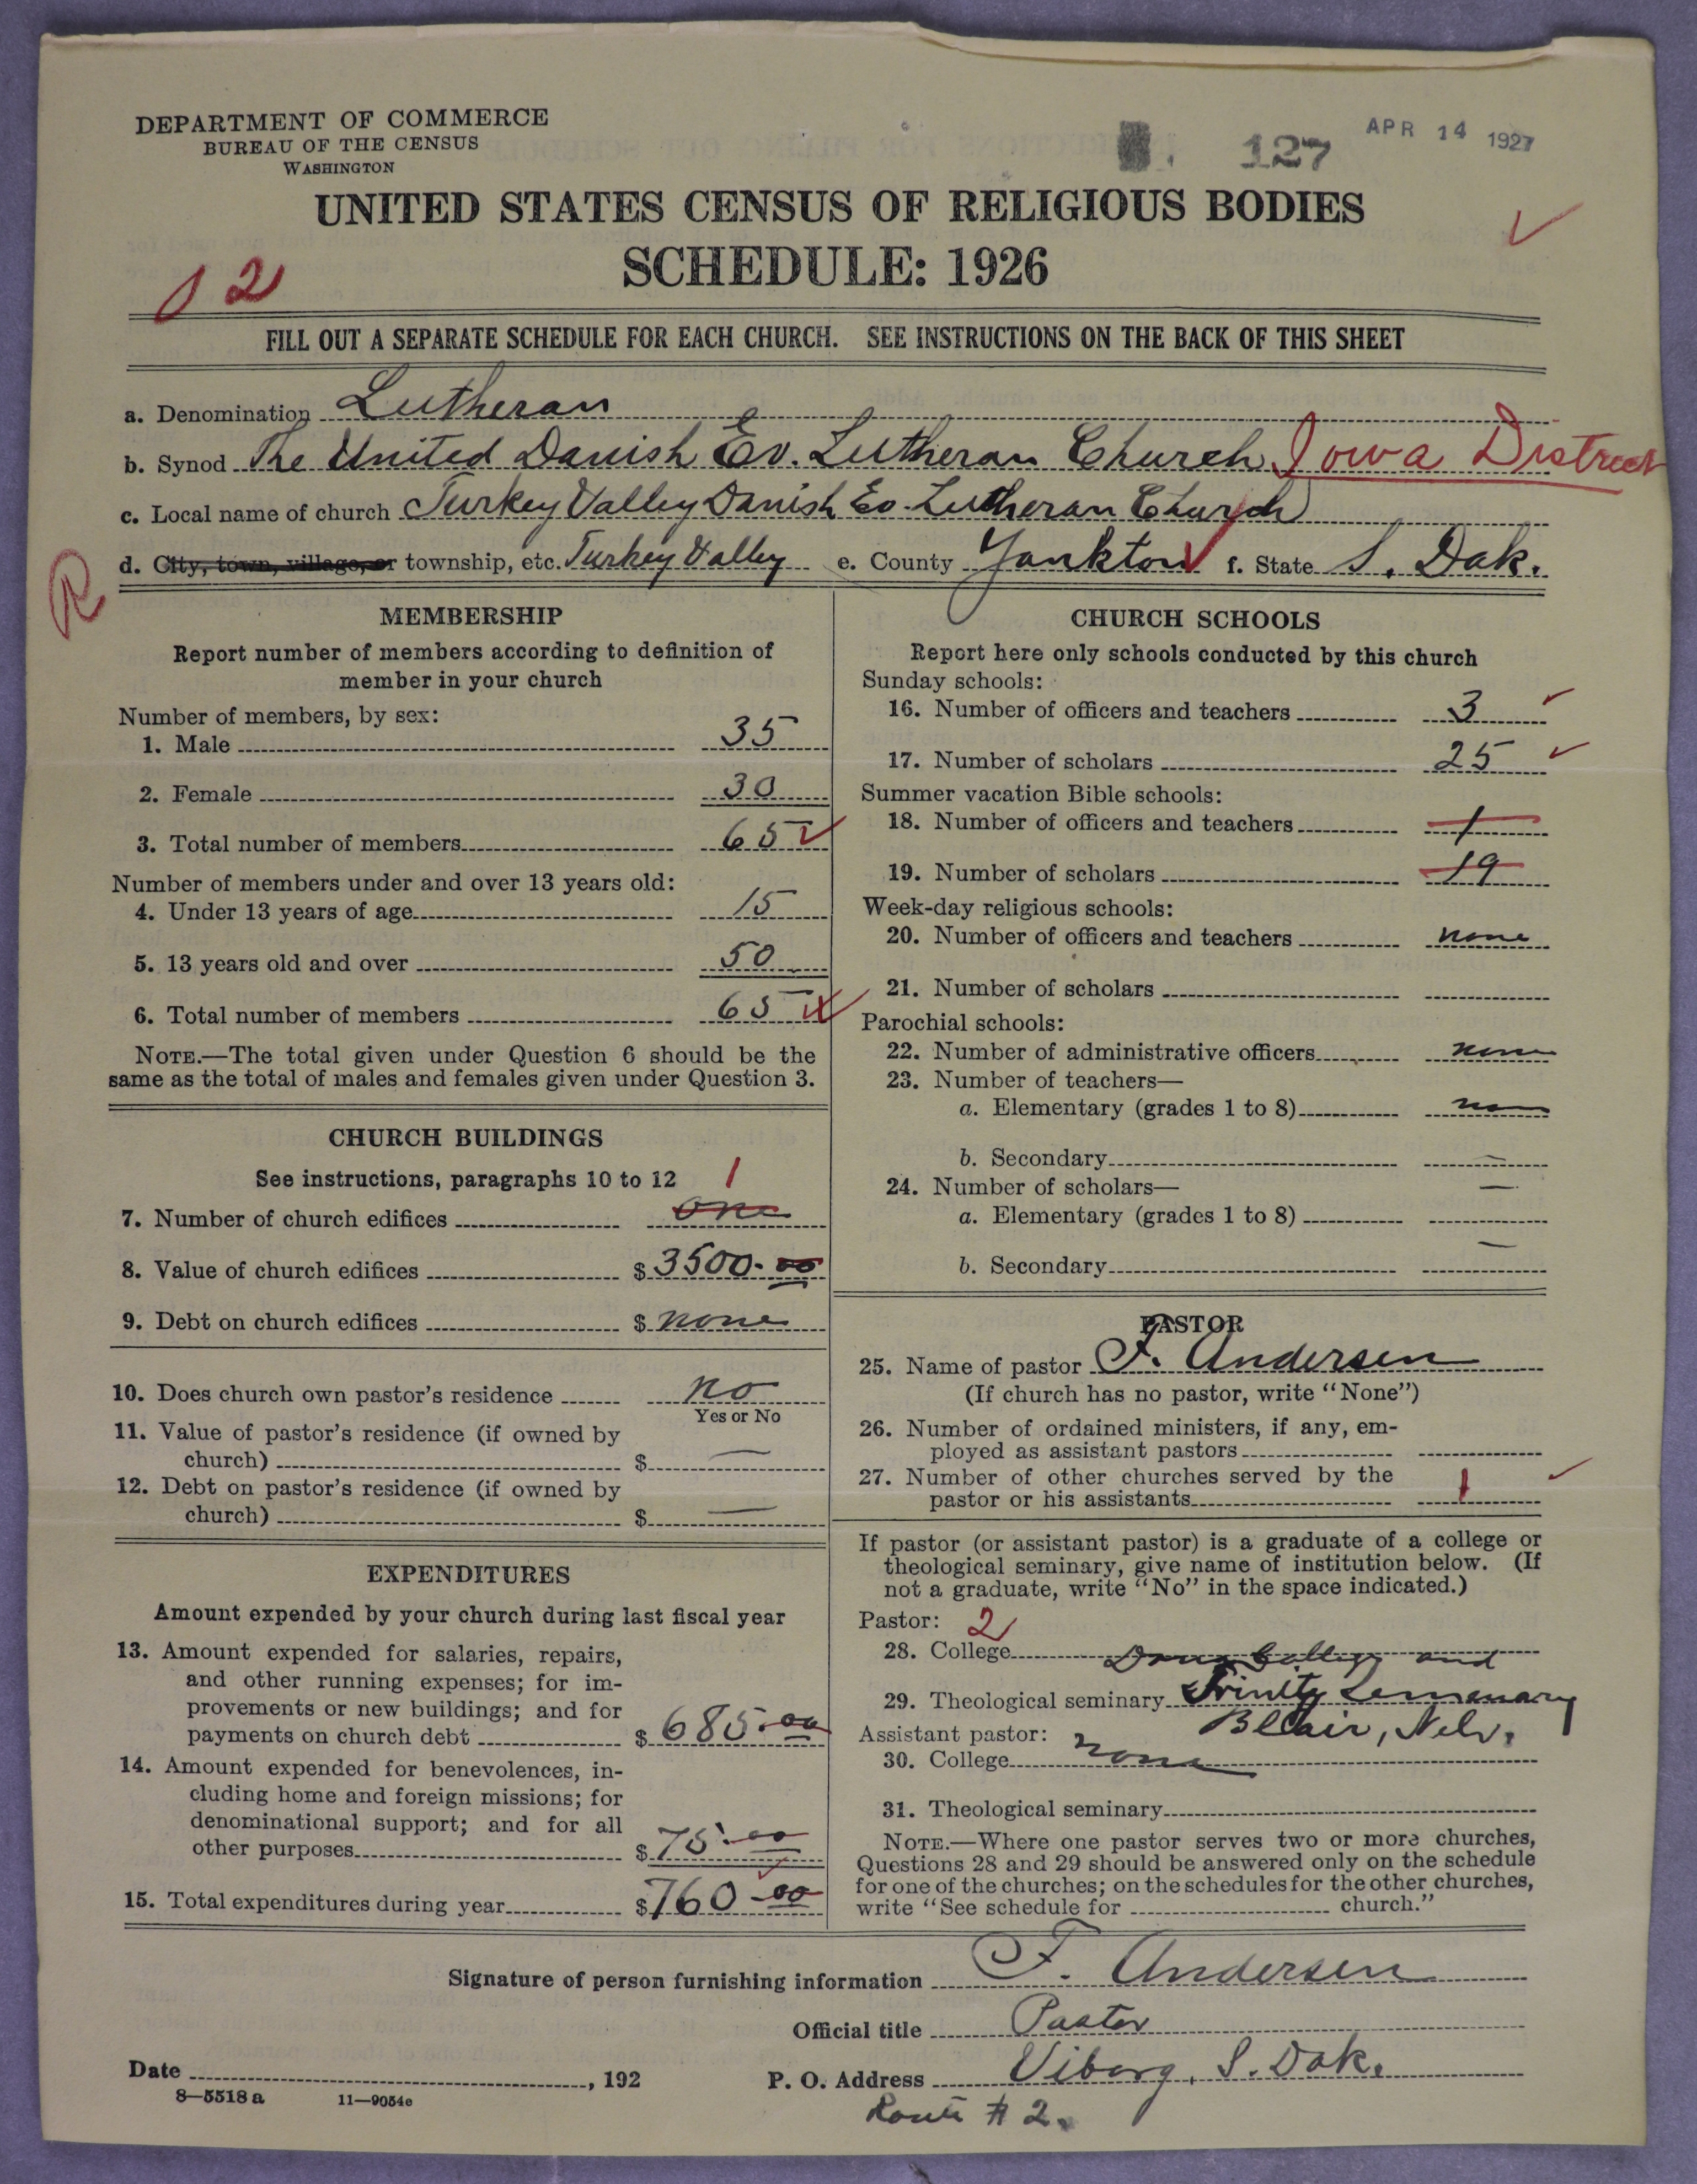 DEPARTMENT OF COMMERCE
BUREAU OF THE CENSUS
WASHINGTON
127
APR 14 1927
UNITED STATES CENSUS OF RELIGIOUS BODIES
SCHEDULE: 1926
02
FILL OUT A SEPARATE SCHEDULE FOR EACH CHURCH. SEE INSTRUCTIONS ON THE BACK OF THIS SHEET
a. Denomination Lutheran
b. Synod The United Danish Ev. Lutheran Church Iowa District
c. Local name of church Turkey Valley Danish Ev. Lutheran Church
d. City, town, village, or township, etc. Turkey Valley e. County Yankton f. State S. Dak.
R
MEMBERSHIP
Report number of members according to definition of
member in your church
Number of members, by sex:
1. Male 35
2. Female 30
3. Total number of members 65
Number of members under and over 13 years old:
4. Under 13 years of age 15
5. 13 years old and over 50
6. Total number of members 65
NOTE.—The total given under Question 6 should be the
same as the total of males and females given under Question 3.
CHURCH BUILDINGS
See instructions, paragraphs 10 to 12
1
7. Number of church edifices one
8. Value of church edifices $ 3500.00
9. Debt on church edifices $ none
10. Does church own pastor's residence no
Yes or No
11. Value of pastor's residence (if owned by
church) $ —
12. Debt on pastor's residence (if owned by
church) $ —
EXPENDITURES
Amount expended by your church during last fiscal year
13. Amount expended for salaries, repairs,
and other running expenses; for im-
provements or new buildings; and for
payments on church debt $ 685.00
14. Amount expended for benevolences, in-
cluding home and foreign missions; for
denominational support; and for all
other purposes $ 75.00
15. Total expenditures during year $ 760.00
CHURCH SCHOOLS
Report here only schools conducted by this church
Sunday schools:
16. Number of officers and teachers 3
17. Number of scholars 25
Summer vacation Bible schools:
18. Number of officers and teachers 1
19. Number of scholars 19
Week-day religious schools:
20. Number of officers and teachers none
21. Number of scholars
Parochial schools:
22. Number of administrative officers none
23. Number of teachers—
a. Elementary (grades 1 to 8)
b. Secondary —
24. Number of scholars— —
a. Elementary (grades 1 to 8)
b. Secondary —
PASTOR
25. Name of pastor F. Andersen
(If church has no pastor, write "None")
26. Number of ordained ministers, if any, em-
ployed as assistant pastors
27. Number of other churches served by the
pastor or his assistants 1
If pastor (or assistant pastor) is a graduate of a college or
theological seminary, give name of institution below. (If
not a graduate, write "No" in the space indicated.)
Pastor: 2
28. College Dana College and
29. Theological seminary Trinity Semenary
Blair, Nebr.
Assistant pastor:
30. College none
31. Theological seminary
NOTE.—Where one pastor serves two or more churches,
Questions 28 and 29 should be answered only on the schedule
for one of the churches; on the schedules for the other churches,
write "See schedule for church."
Signature of person furnishing information F. Andersen
Official title Pastor
Date , 192
P. O. Address Viborg, S. Dak.
Route # 2.
8—5518 a 11—9054e